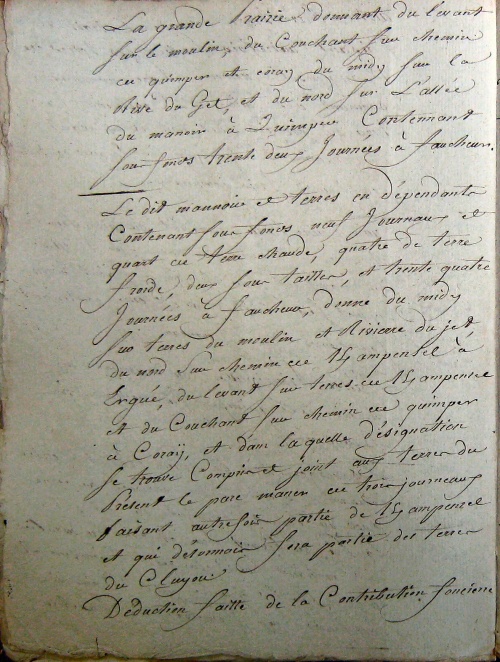 La grande Prairie donnant du levant
sur le moulin, du Couchant sur chemin
de quimper et coray du midy sur la
Rive du Get, et du nord sur L'allée
du manoir à Quimper Contennant
sou fonds trente deux Journées à faucheur.
Le dit mannoir et terres en dépendants
Contenant sous fonds neuf Journaux et
quart de terre chaude, quatre de terre
froide, deux sous tailles, et trente quatre
Journées à faucheur, donne du midy
sur terres du moulin et Rivierre du jet
du nord sur chemin de K/ampensel à
Ergué, du levant sur terres de K/ampensel
et du Couchant sur chemin de quimper
à Coray, et dans laquelle désignation
se trouve Compris et joint aux terres du
Présent le parc maner de trois journeaux
faisant autrefois partie de K/ampensel
et qui désormais fera partie des terres
du Cluyou
Déduction faitte de la Contribution fonciere